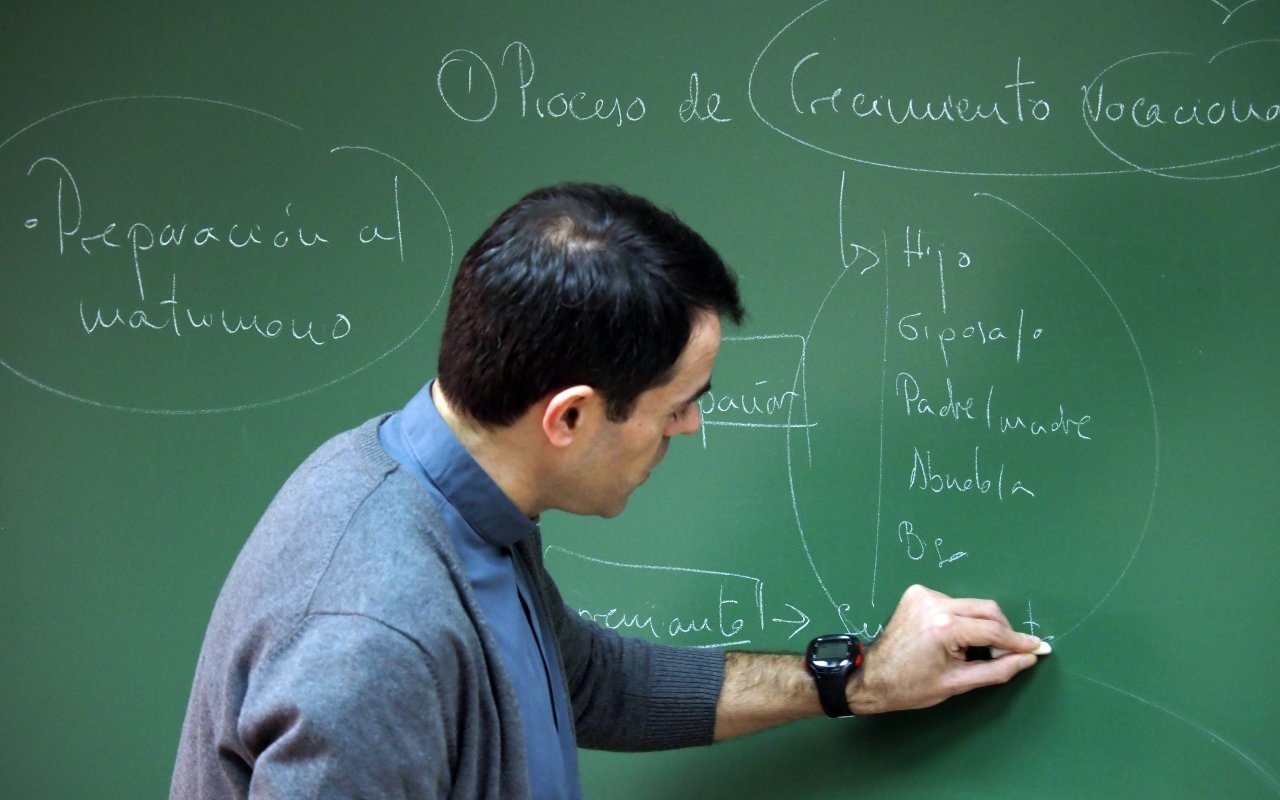 ① Proceso de Crecimiento Vocaciona
• Preparación al
matrimonio
Hijo
Esposa/o
Padre/madre
Abuelo/a